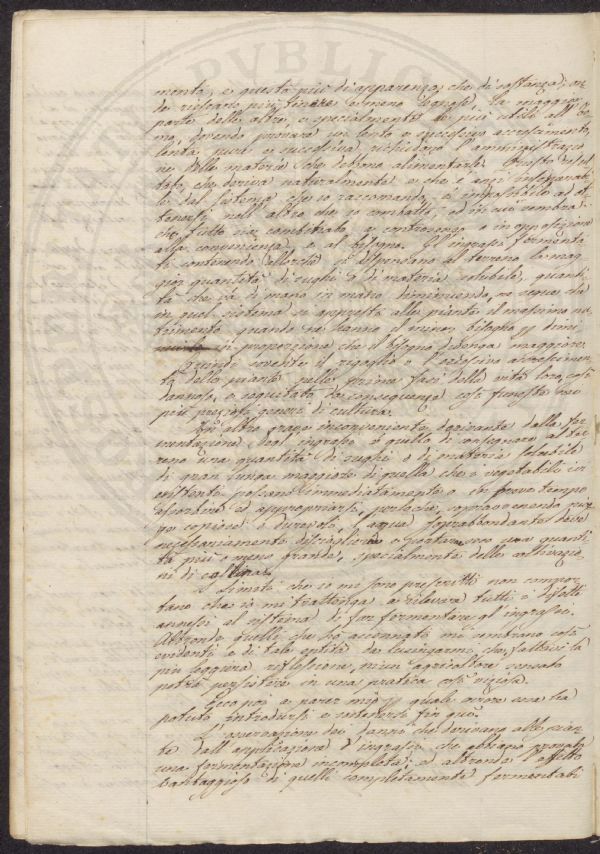 menta, e questa più di apparenza, che di sostanza; on-
de riescano più tenere e meno legnose, la maggior
parte delle altre, e specialmente le più utili all'uo-
mo, dovendo provare un lento e successivo accrescimento,
lenta pure e successiva richiedono l'amministrazio-
ne delle materie che debbono alimentarle. Questo risul-
tato, che deriva naturalmente e che è anzi inseparabi-
le dal sistema che io raccomando, è impossibile ad ot-
tenersi nell'altro che io combatto; ed in ciò sembra
che tutto sia combinato a controsenso e in opposizione
alla convenienza, e al bisogno. Gl'ingrassi fermenta-
ti contenendo allorché si dispensano al terreno la mag-
gior quantità di sughi e di materie solubili, quanti-
tà che va di mano in mano diminuendo, ne segue che
in quel sistema si appresta alle piante il massimo nu-
trimento quando ne hanno il minor bisogno e dimi-
a proporzione che il bisogno divenga maggiore.
Quindi sovente il rigoglio e l'eccessivo accrescimen-
to delle piante nelle prime fasi della vita loro, così
dannoso, e seguitato da conseguenze così funeste nei
più preziosi generi di cultura.
Un altro grave inconveniente derivante dalla fer-
mentazione degl'ingrassi è quello di consegnare al ter-
reno una quantità di sughi e di materie solubili
di gran lunga maggiore di quella che i vegetabili ivi
esistenti possano immediatamente o in breve tempo
assorbire ed appropriarsi, perloché, sopravvenendo piog-
ge copiose e durevoli, l'acqua soprabbondante deve
necessariamente discioglierne e portarne seco una quanti-
tà più o meno grande, specialmente delle coltivazio-
ni di collina.
I limiti che io mi sono prescritti non compor-
tano che io mi trattenga a rilevare tutti i difetti
annessi al sistema di far fermentare gl'ingrassi.
Altronde quelli che ho accennato mi sembrano così
evidenti e di tale entità da lusingarmi che, fattavi la
più leggiera riflessione, niun agricoltore sensato
potrà persistere in una pratica così viziosa.
Ecco poi a parer mio quale errore una ha
potuto introdursi e sostenersi fin qui.
L'osservazione dei danni che derivano alle pian-
te dall'applicazione d'ingrassi che abbiano provato
una fermentazione incompleta; ed altronde l'effetto
vantaggioso di quelli completamente fermentati